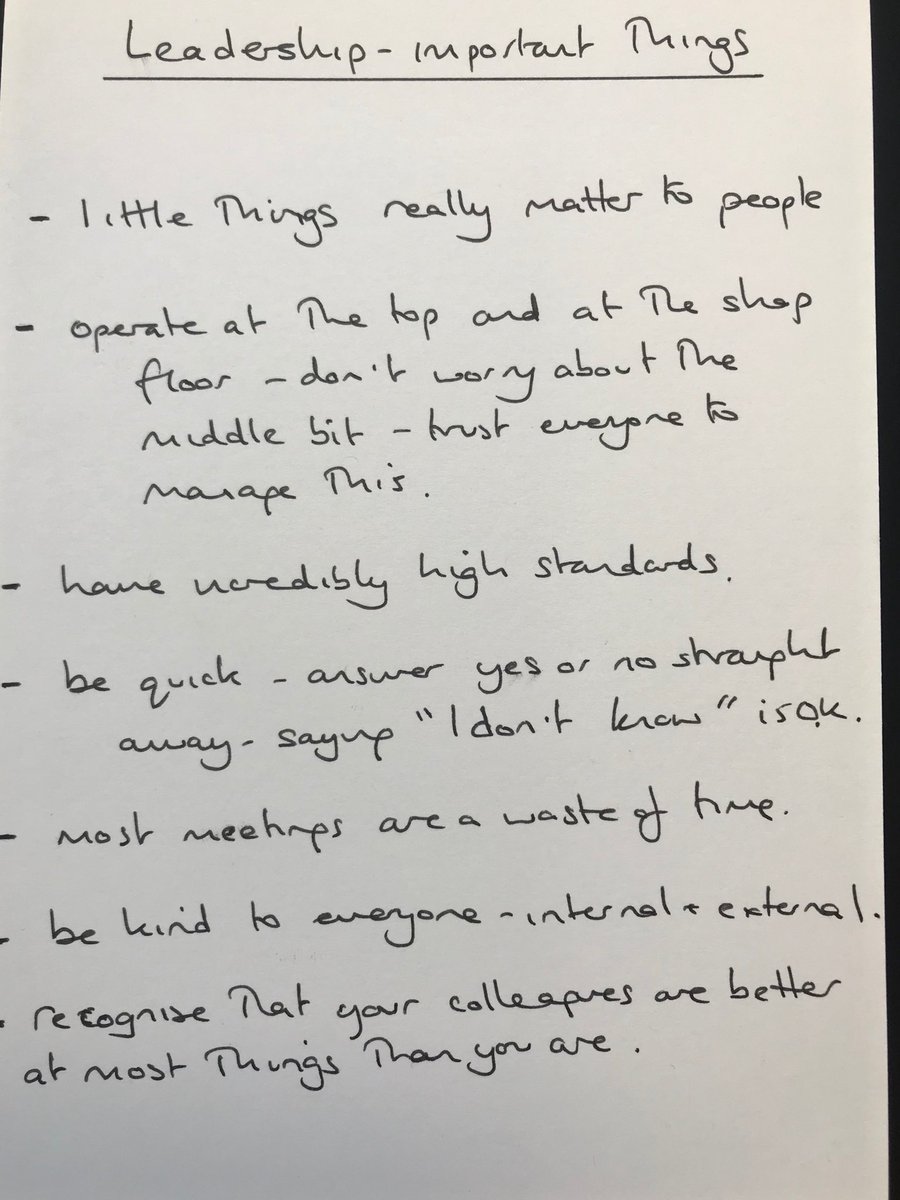 Leadership - important Things
- little Things really matter to people
- operate at The top and at The shop
floor - don't worry about The
middle bit - trust everyone to
manage This.
- have incredibly high standards.
- be quick - answer yes or no straight
away - saying "I don't know" is O.K.
- most meetings are a waste of time.
- be kind to everyone - internal + external.
- recognise That your colleagues are better
at most Things Than you are.